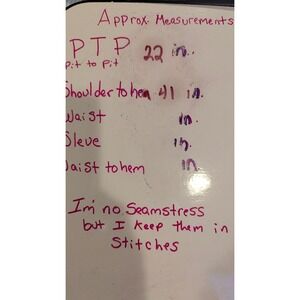 Approx. Measurements
PTP 22 in.
Pit to Pit
Shoulder to hem 41 in.
Waist in.
Sleve in.
Waist to hem in
I'm no Seamstress
but I keep them in
Stitches